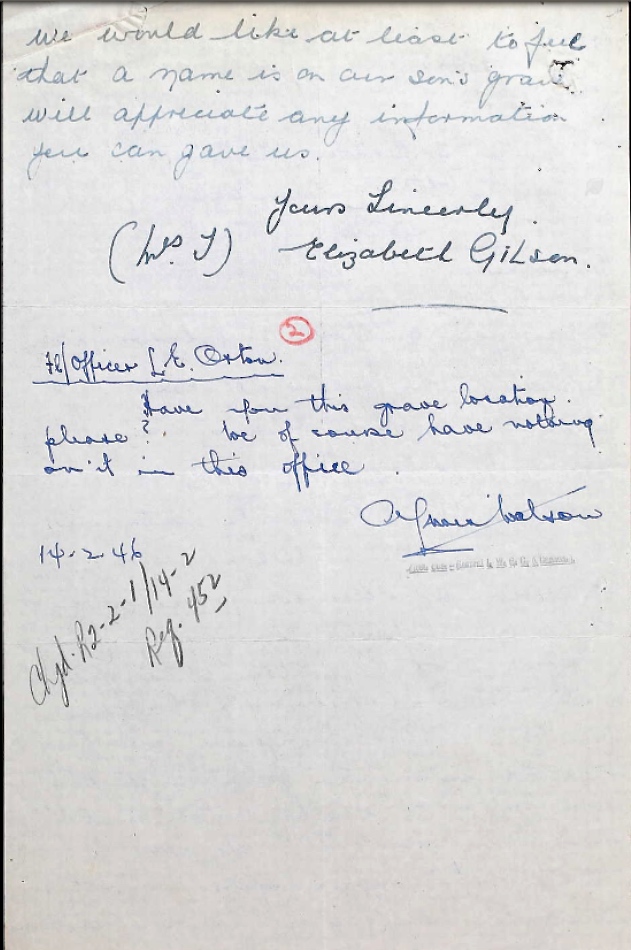 we would like at least to feel
that a name is on our son's grave I
will appreciate any information
you can gave us.
Yours Sincerely.
(Mrs. J) Elizabeth Gilson.
2
Fl/Officer L. E. Orton.
Have you this grave location
please? We of course have nothing
on it in this office.
Watson
14-2-46
Chgd. R2-2-1/14-2
Reg. 452